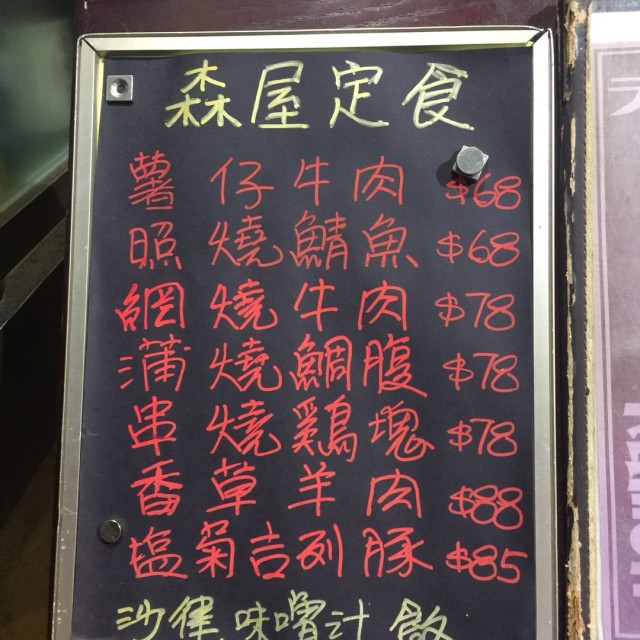 森屋定食
薯仔牛肉 $68
照燒鯖魚 $68
網燒牛肉 $78
蒲燒鯛腹 $78
串燒鶏塊 $78
香草羊肉 $88
塩菊吉列豚 $85
沙律 味噌汁 飯